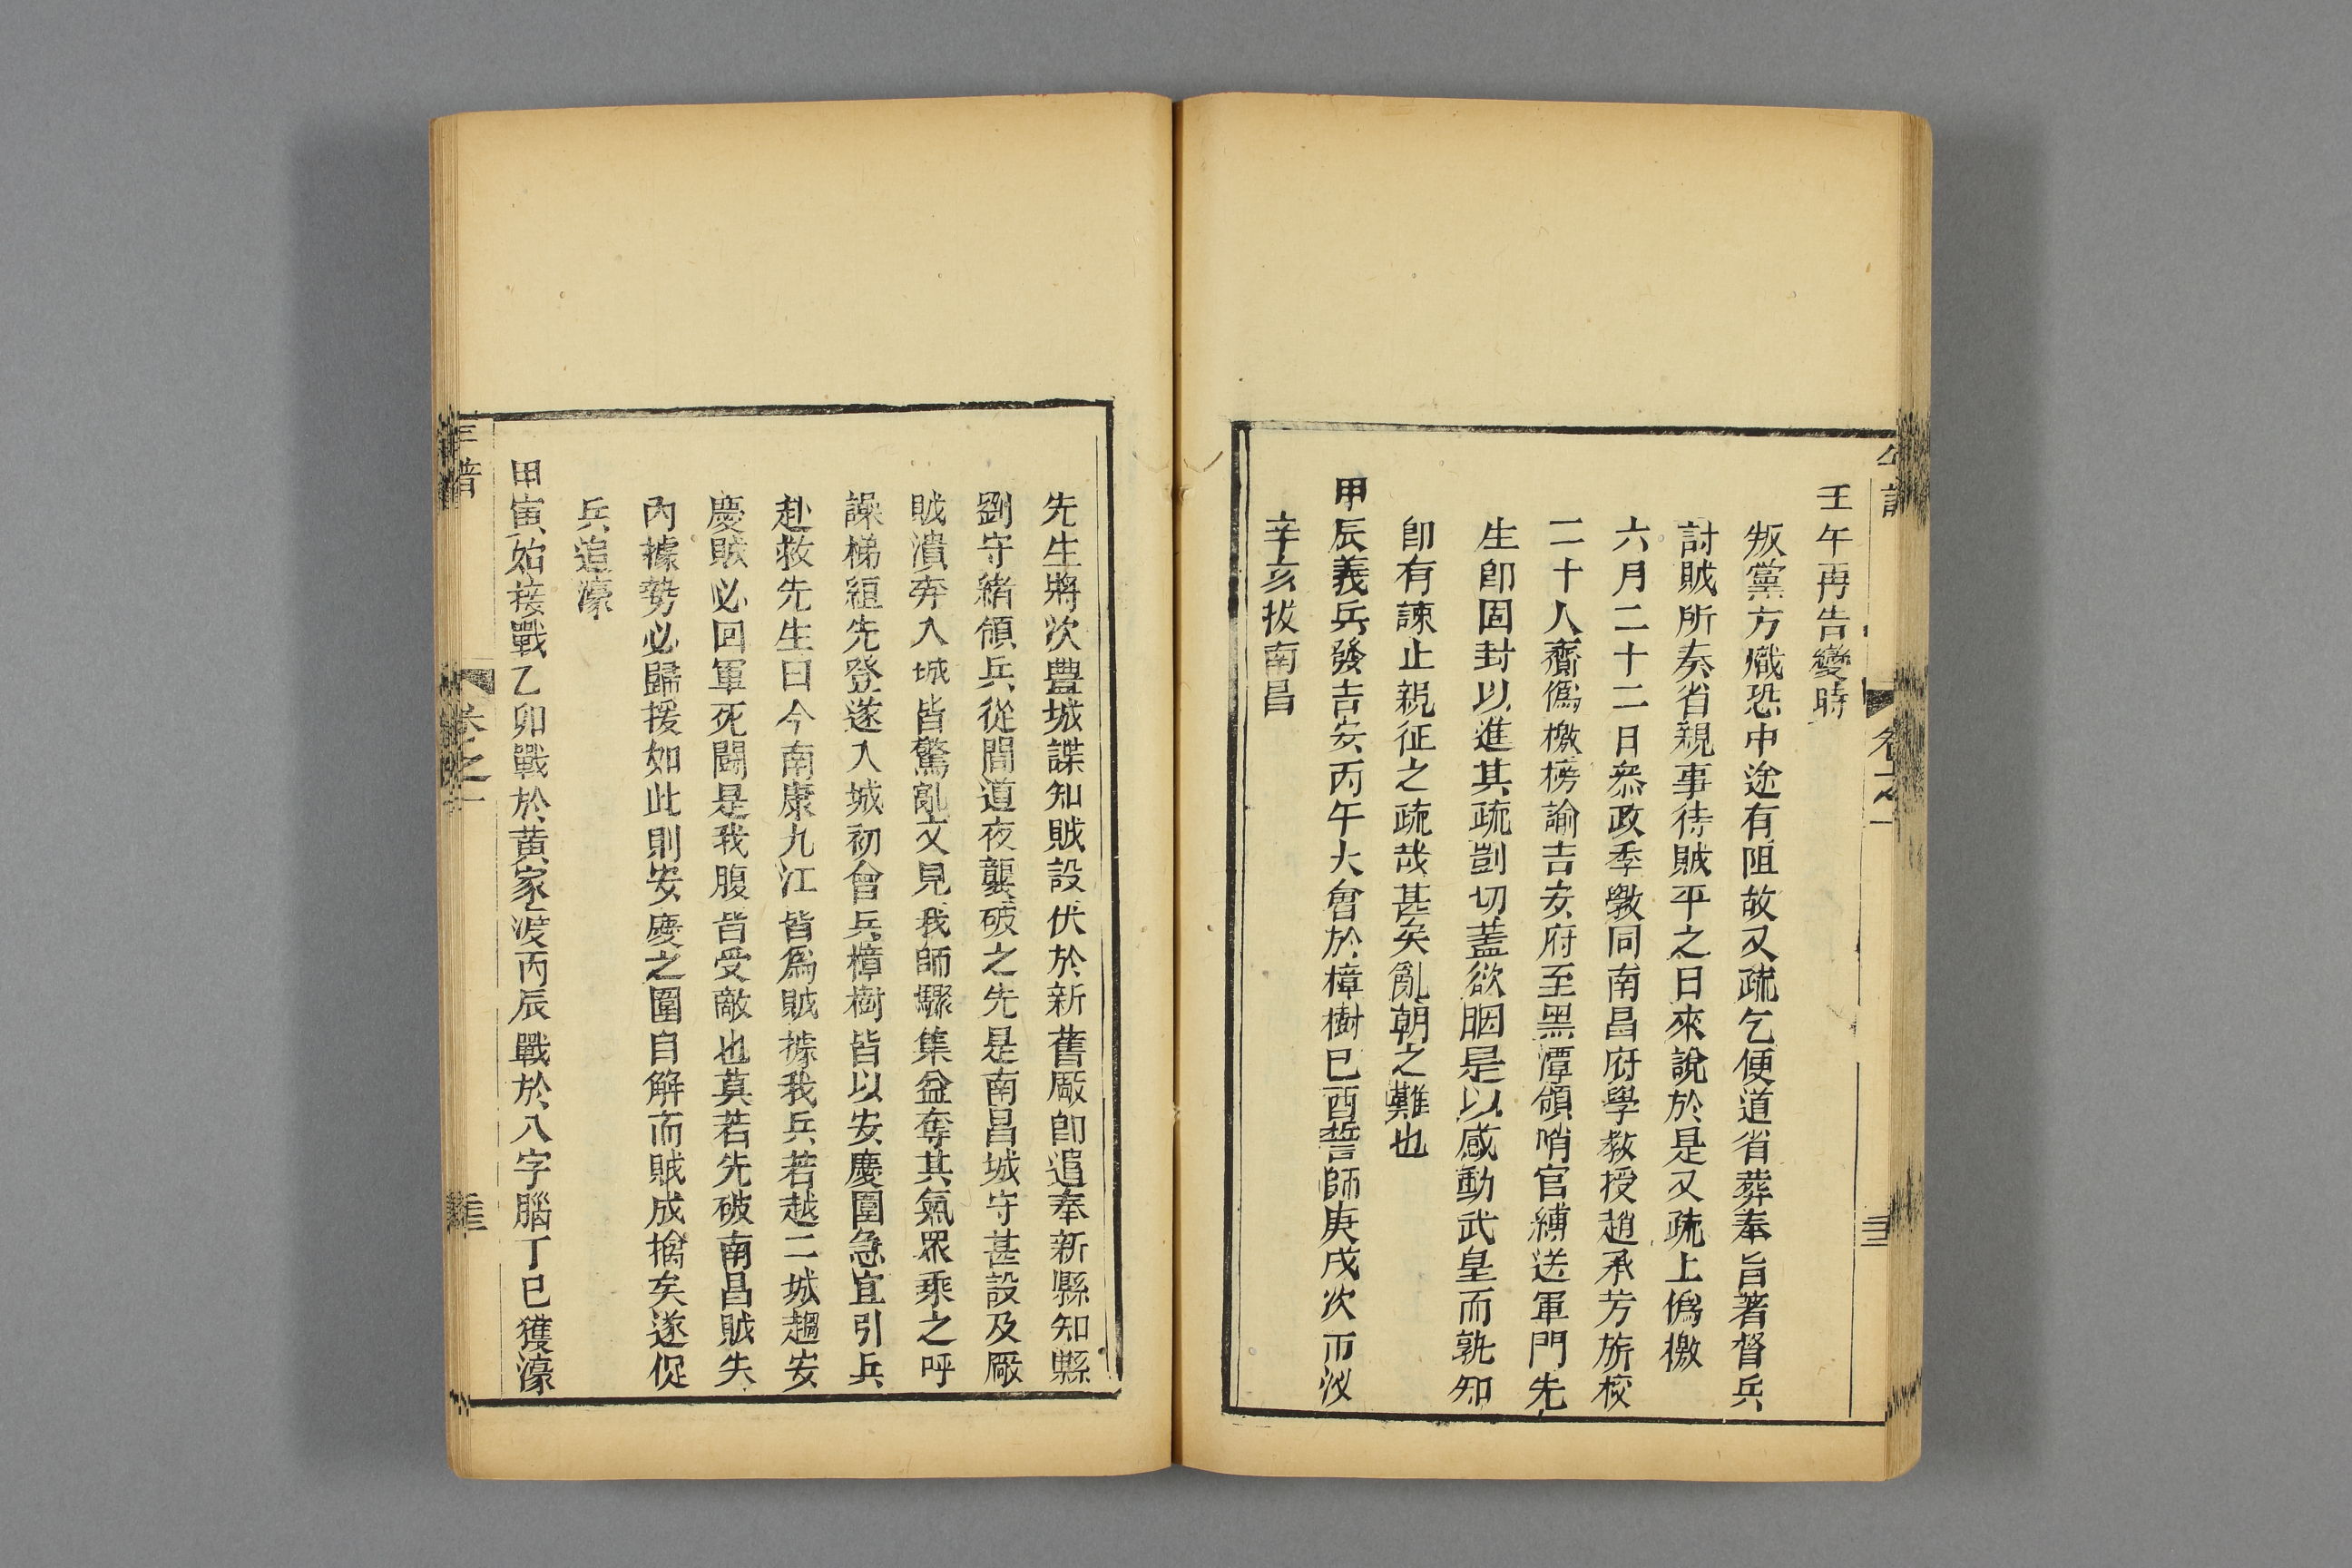 壬午再告變時
叛黨方熾恐中途有阻故又疏乞便道省葬奉旨著督兵
討賊所奏省親事待賊平之日來說於是又疏上僞檄
六月二十二日叅政季斆同南昌府學教授趙承芳旂校
二十人齎僞檄榜諭吉安府至黑潭領哨官縛送軍門先
生卽固封以進其疏剴切蓋欲因是以感動武皇而孰知
卽有諫止親征之疏哉甚矣亂朝之難也
甲辰義兵發吉安丙午大會於樟樹己酉誓師庚戌次市汊
辛亥拔南昌
先生將次豊城諜知賊設伏於新舊廠卽追奉新縣知縣
劉守緒領兵從間道夜襲破之先是南昌城守甚設及廠
賊潰奔入城皆驚亂又見我師驟集益奪其氣眾乘之呼
譟梯絙先登遂入城初會兵樟樹皆以安慶圍急宜引兵
赴救先生曰今南康九江皆爲賊據我兵若越二城趨安
慶賊必回軍死鬬是我腹背受敵也莫若先破南昌賊失
內據勢必歸援如此則安慶之圍自解而賊成擒矣遂促
兵追濠
甲寅始接戰乙卯戰於黃家渡丙辰戰於八字腦丁巳獲濠
年譜
卷之一